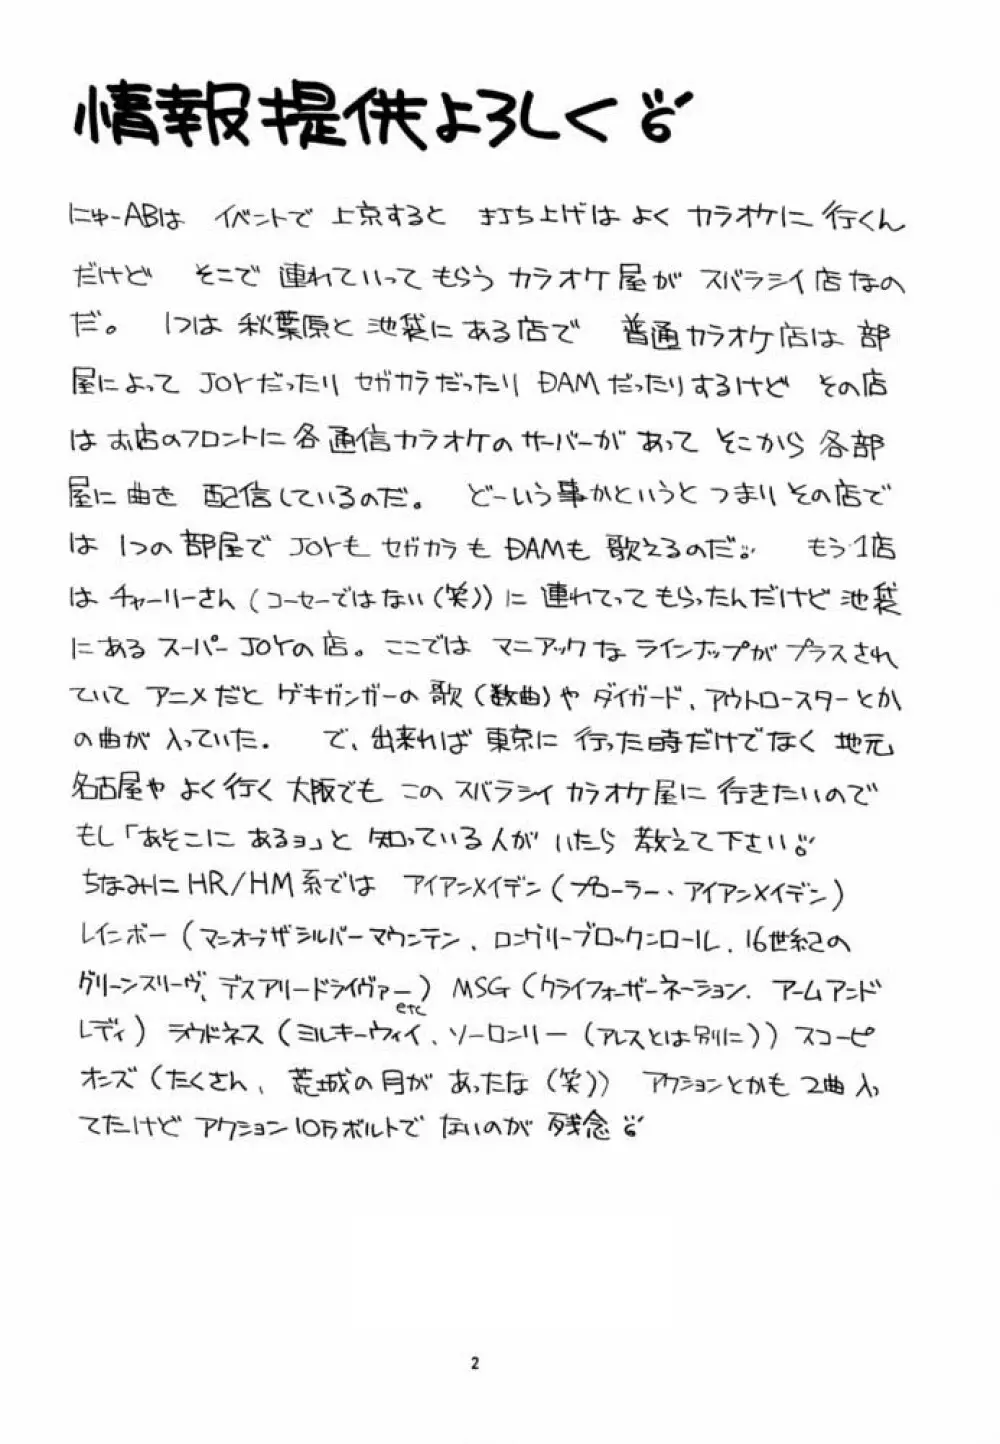 情報提供よろしく
にゅーABは イベントで 上京すると 打ち上げは よく カラオケに 行くん
だけど そこで 連れていって もらう カラオケ屋が スバラシイ店なの
だ。 1つは 秋葉原と 池袋に ある 店で 普通カラオケ店は 部
屋によって JOYだったり セガカラだったり DAMだったりするけど その店
は お店のフロントに 各通信カラオケの サーバーが あって そこから 各部
屋に 曲を 配信しているのだ。 どーいう事かというと つまり その店で
は 1つの 部屋で JOYも セガカラも DAMも 歌えるのだ。 もう1店
は チャーリーさん(コーセーではない(笑))に 連れてって もらったんだけど 池袋
にある スーパーJOYの店。ここでは マニアックな ラインナップが プラスされ
ていて アニメだと ゲキガンガーの 歌(数曲)や ダイガード、アウトロースターとか
の曲が 入っていた. で、出来れば 東京に 行った時だけでなく 地元
名古屋や よく行く 大阪でも この スバラシイ カラオケ屋に 行きたいので
もし「あそこに あるョ」と 知っている人が いたら 教えて下さい。
ちなみに HR/HM系では アイアンメイデン(プローラー、アイアンメイデン)
レインボー(マンオブザシルバーマウンテン、ロングリーブロックンロール、16世紀の
グリーンスリーヴ、デスアリードライヴァー etc)MSG(クライフォーザネーション. アームアンド
レディ) ラウドネス(ミルキーウェイ、ソーロンリー(アレスとは別に)) スコーピ
オンズ(たくさん、荒城の月が あったな(笑)) アクションとかも 2曲入っ
てたけど アクション10万ボルトで ないのが 残念
2